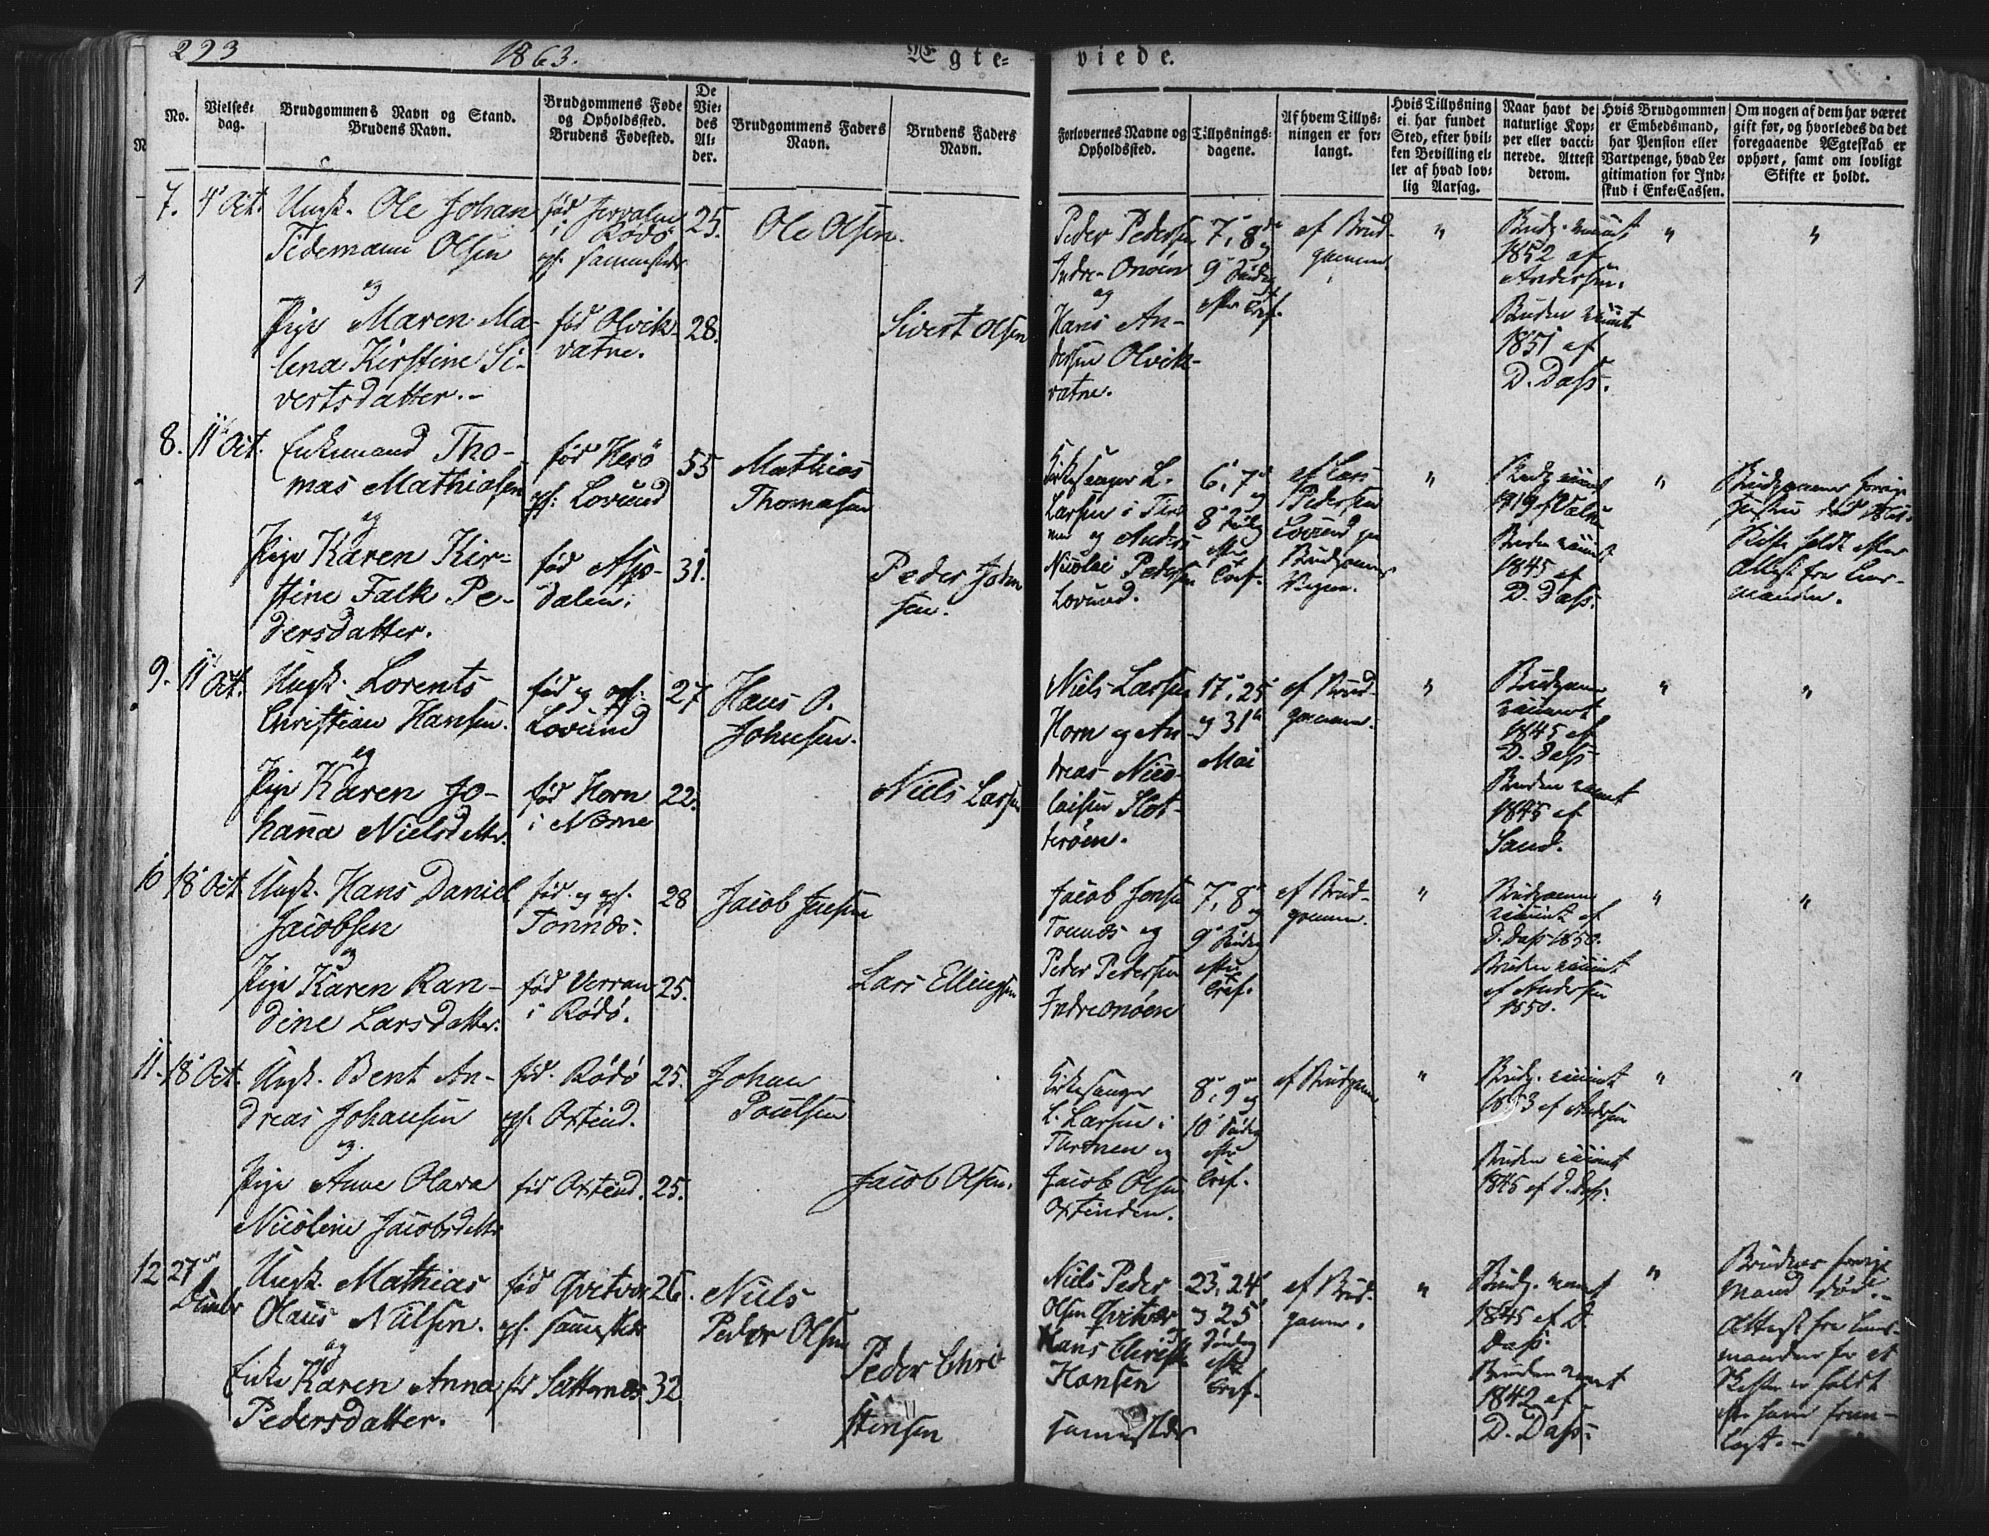 293 1863. Ægte= viede.
No.
Vielses=
dag.
Brudgommens Navn og Stand.
Brudens Navn.
Brudgommens Føde
og Opholdssted.
Brudens Fødested.
De
Vie=
des
Al=
der.
Brudgommens Faders
Navn.
Brudens Faders
Navn.
Forlovernes Navne og
Opholdssted.
Tillysnings=
dagene.
Af hvem Tillys=
ningen er for=
langt.
Hvis Tillysning
ei har fundet
Sted, efter hvil=
ken Bevilling el=
ler af hvad lov=
lig Aarsag.
Naar havt de
naturlige Kop=
per eller vacci=
nerede. Attest
derom.
Hvis Brudgommen
er Embedsmand,
har Pension eller
Vartpenge, hvad Le=
gitimation for Ind=
skud i Enke=Cassen.
Om nogen af dem har været
gift før, og hvorledes da det
foregaaende Ægteskab er
ophørt, samt om lovligt
Skifte er holdt.
7. 4 Oct. Ungk. Ole Johan
Tidemann Olsen
og
Pige Maren Ma-
lena Kirstine Si-
vertsdatter.-
født
i Rødø
født Olvik-
vatne.
25.
28.
Ole Olsen.
Sivert Olsen
Peder Pedersen
Indre-Onøen
og
Hans An-
dersen Olvik-
vatne.
7, 8 og
9 Søndag
efter Tref.
af Brud-
gommen
"
Brudg. vaccint
1852 af
Andersen.
Bruden vaccint
1851 af
D. Dass.
"
"
8. 11 Oct. Enkemand Tho-
mas Mathiasen
og
Pige Karen Kir-
stine Falk Pe-
dersdatter.
født Herø
opf. Lovund
født Asp-
dalen.
55
31.
Mathias
Thomasen
Peder John
sen.
Kirkesanger L.
Larsen i
og Anders
Nicolai Pedersen
Lovund.
6, 7 og
8 Søndag
efter
Tref.
af Lars
Pedersen
Lovund paa
Brudgommens
Vegne.
"
Brudg. vaccint
1819 af
Bruden vaccint
1845 af
D. Dass.
"
Brudgommens forrige
Hustru død
Skifte holdt efter
Attest fra Lens-
manden.
9. 11 Oct. Ungk. Lorents
Christian Hansen.
og
Pige Karen Jo-
hanna Nielsdattr.
født og opf.
Lovund
født Horn
i
27
22.
Hans O.
Johnsen.
Niels Larsen
Niels Larsen
Horn og An-
dreas Nico-
laisen Slot-
terøen.
17, 25
og 31
Mai
af Brud-
gommen.
"
Brudgommen
vaccineret
1845 af
D. Dass
Bruden vaccint
1845 af
Sand.
"
"
10 18 Oct. Ungk. Hans Daniel
Jacobsen
og
Pige Karen Ran-
dine Larsdatter.
født og opf.
Tonnes.
født Verran
i Rødø.
28
25.
Jacob Jensen
Lars Ellingsen
Jacob Jensen
Tonnes og
Peder Pedersen
Indreonøen
7, 8 og
9 Søndag
efter
Tref.
af Brud-
gommen.
"
Brudgommen
vaccint af
D. Dass 1850.
Bruden vaccint
af Andersen
1850.
"
"
11. 18 Oct. Ungk. Bent An-
dreas Johansen
og
Pige Anne Olava
Nicoline Jacobsdattr
født Rødø
opf. Oxtind.
født Oxtind.
25.
25.
Johan
Poulsen
Jacob Olsen.
Kirkesanger
L. Larsen i
og
Jacob Olsen
Oxtinden.
8, 9 og
10 Søndag
efter
Tref.
af Brudgommen
"
Brudg. vaccint
1853 af Andersen
Bruden vaccint
1845 af D. Dass.
"
"
12 27 Ungk. Mathias
Olaus Nilsen.
og
Enke Karen Anna
Pedersdatter.
født Qvitvær
opf. sammesteds
født Sætternes
26.
32
Niels
Peder Olsen
Peder Chri
stensen
Niels Peder
Olsen Qvitvær
Hans Christ.
Hansen
sammesteds
23, 24
og 25
Søndag
efter
Tref.
af Brud-
gommen.
"
Brudg. vaccint
1845 af D.
Dass.
Bruden vaccint
1842 af
D. Dass.
"
Brudens forrige
Mand død.-
Attest fra Lens-
manden for at
Skifte er holdt
efter ham frem-
lagt.-